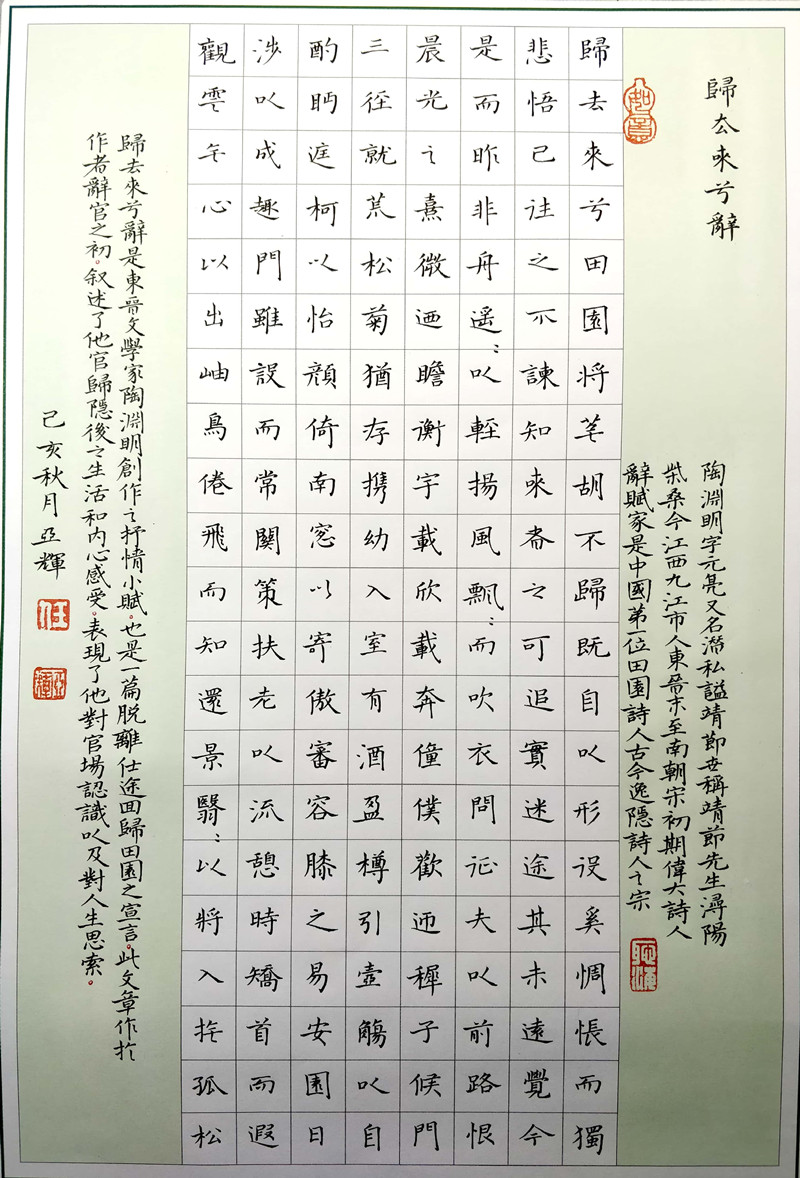 歸去來兮辭
如意
陶淵明字元亮又名潛私謚靖節世稱靖節先生潯陽
柴桑今江西九江市人東晉末至南朝宋初期偉大詩人
辭賦家是中國第一位田園詩人古今逸隱詩人之宗
歸去來兮田園將芜胡不歸既自以形役奚惆悵而獨
悲悟已往之不諫知來者之可追實迷途其未遠覺今
是而昨非舟遥:以輕揚風飄:而吹衣問征夫以前路恨
晨光之熹微迺瞻衡宇載欣載奔僮僕歡迎稚子候門
三徑就荒松菊猶存携幼入室有酒盈樽引壺觴以自
酌眄庭柯以怡顔倚南窓以寄傲審容膝之易安園日
涉以成趣門雖設而常關策扶老以流憩時矯首而遐
觀雲无心以出岫鳥倦飛而知還景翳:以將入抚孤松
歸去來兮辭是東晉文學家陶淵明創作之抒情小賦。也是一篇脱離仕途回歸田園之宣言。此文章作於
作者辭官之初。叙述了他官歸隱後之生活和内心感受。表現了他對官場認識以及對人生思索。
己亥秋月亞輝
任
亞輝